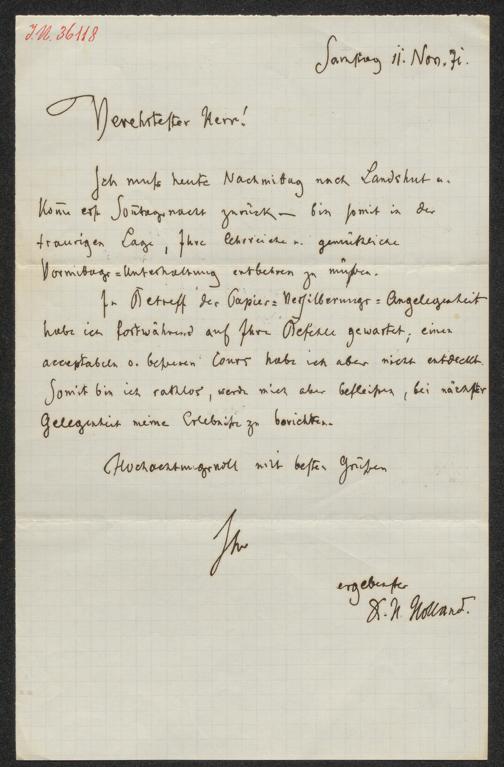 J.N. 36118
Samstag 11. Nov. 71.
Verehrtester Herr!
Ich muß heute Nachmittag nach Landshut u.
komme erst Sonntagsnacht zurück – bin somit in der
traurigen Lage, Ihre lehrreiche u. gemüthliche
Vormittags=Unterhaltung entbehren zu müßen.
In Betreff der Papier=Versilberungs=Angelegenheit
habe ich fortwährend auf Ihre Befehle gewartet; einen
acceptabeln o. besseren Cours habe ich aber nicht entdeckt.
Somit bin ich rathlos, werde mich aber befleißen, bei nächster
Gelegenheit meine Erlebniße zu berichten.
Hochachtungsvoll mit besten Grüßen
Ihr
ergebenster
D. H. Holland.